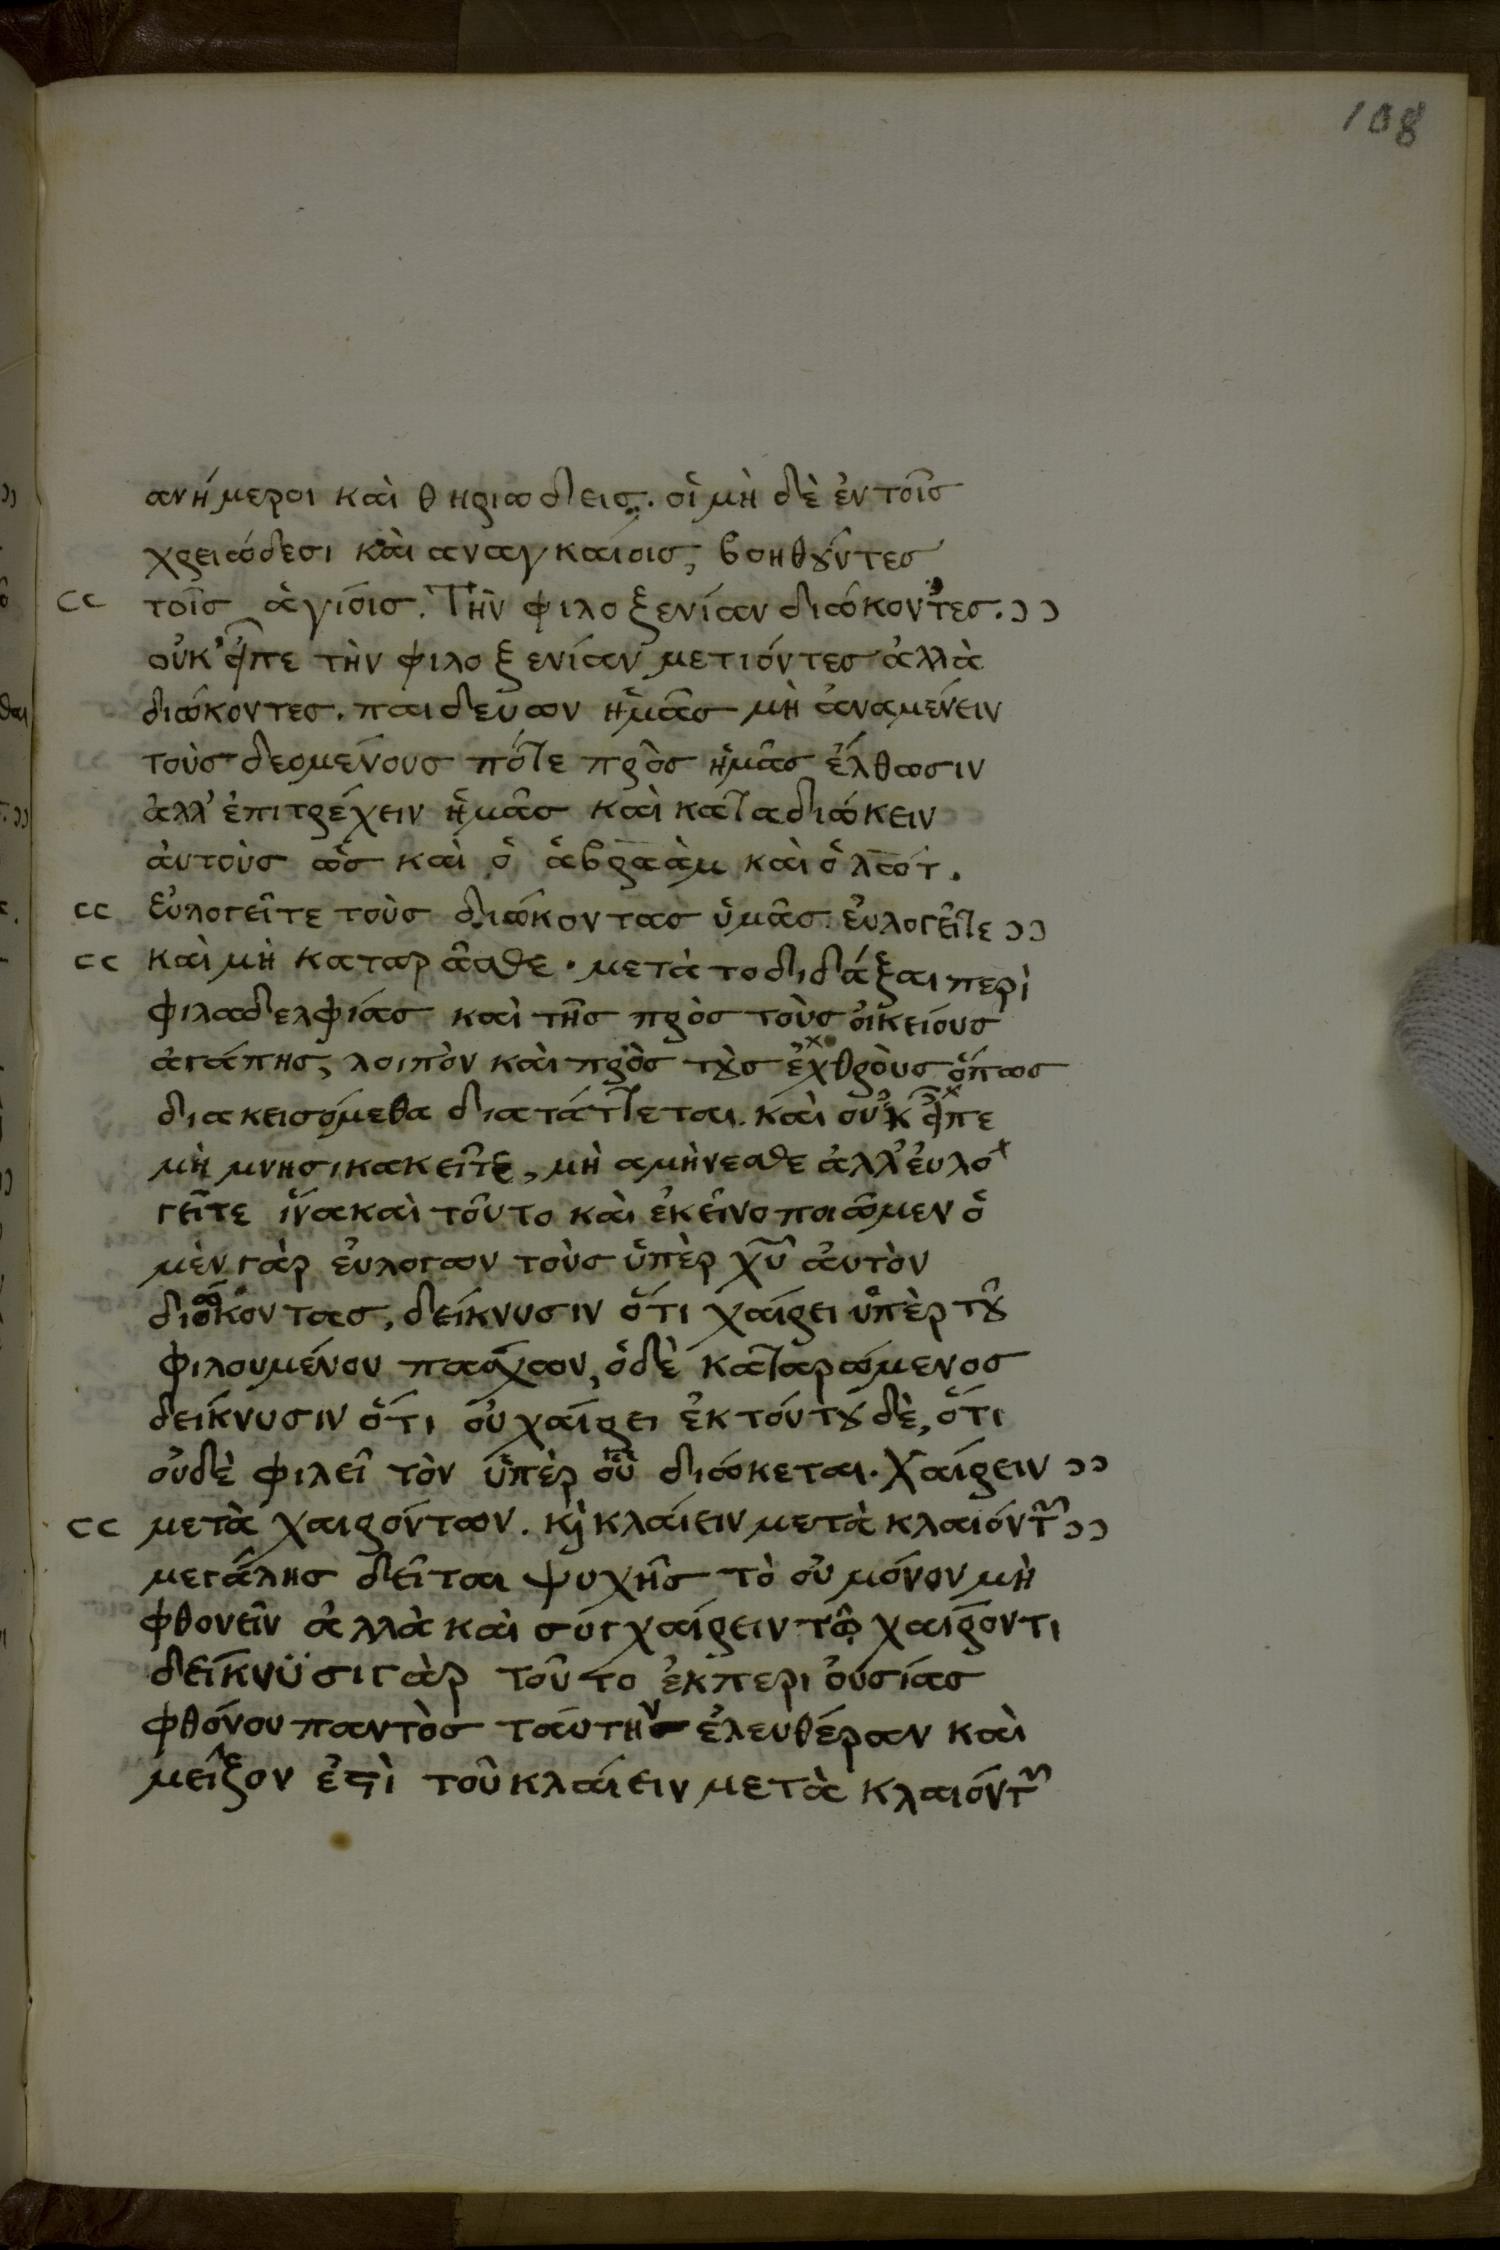 108
ανήμεροι καὶ θηριώδεις. οἱ μὴ δὲ ἐν τοῖς
χρειώδεσι καὶ αναγκαίοις, βοηθοῦντες
τοῖς ἁγίοις. Τὴν φιλοξενίαν διώκοντες.
οὐκ εἶπε τὴν φιλοξενίαν μετιόντες ἀλλὰ
διώκοντες. παιδεύων ἡμᾶς μὴ ἀναμένειν
τοὺς δεομένους πότε πρὸς ἡμᾶς ἔλθωσιν
ἀλλ' ἐπιτρέχειν ἡμᾶς καὶ καταδιώκειν
ἀυτοὺς ὡς καὶ ὁ ἁβραὰμ καὶ ὁ λώτ.
Εὐλογεῖτε τοὺς διώκοντας ὑμᾶς. ἐυλογεῖτε
καὶ μὴ καταρᾶσθε. μετὰ το διδάξαι περὶ
φιλαδελφίας καὶ τῆς πρὸς τοὺς οἰκείους
ἀγάπης, λοιπὸν καὶ πρὸς τοὺς ἐχθροὺς ὅπως
διακεισόμεθα διατάττεται. καὶ οὐκ εἶπε
μὴ μνησικακεῖτε, μὴ αμήνεσθε ἀλλ' ἐυλο
γεῖτε ἵνα καὶ τοῦτο καὶ ἐκεῖνο ποιῶμεν ὁ
μὲν γὰρ ἐυλογων τοὺς ὑπὲρ χῦ ἀυτὸν
διώκοντας, δείκνυσιν ὅτι χαίρει ὑπὲρ τοῦ
φιλουμένου πασχων, ὁ δὲ καταρώμενος
δείκνυσιν ὅτι οὐ χαίρει ἐκ τούτου δὲ, ὅτι
οὐδὲ φιλεῖ τὸν ὑπὲρ οὗ διώκεται. Χαίρειν
μετὰ χαιρόντων. κὶ κλαίειν μετὰ κλαιόντων
μεγάλης δεῖται ψυχῆς τὸ οὐ μόνον μὴ
φθονεῖν ἀλλὰ καὶ συγχαίρειν τῷ χαίροντι
δείκνϋσι γὰρ τοῦτο ἐκ περιουσίας
φθόνου παντὸς ταύτην ἐλευθέραν καὶ
μεῖζον ἐστὶ τοῦ κλαίειν μετὰ κλαιόντων